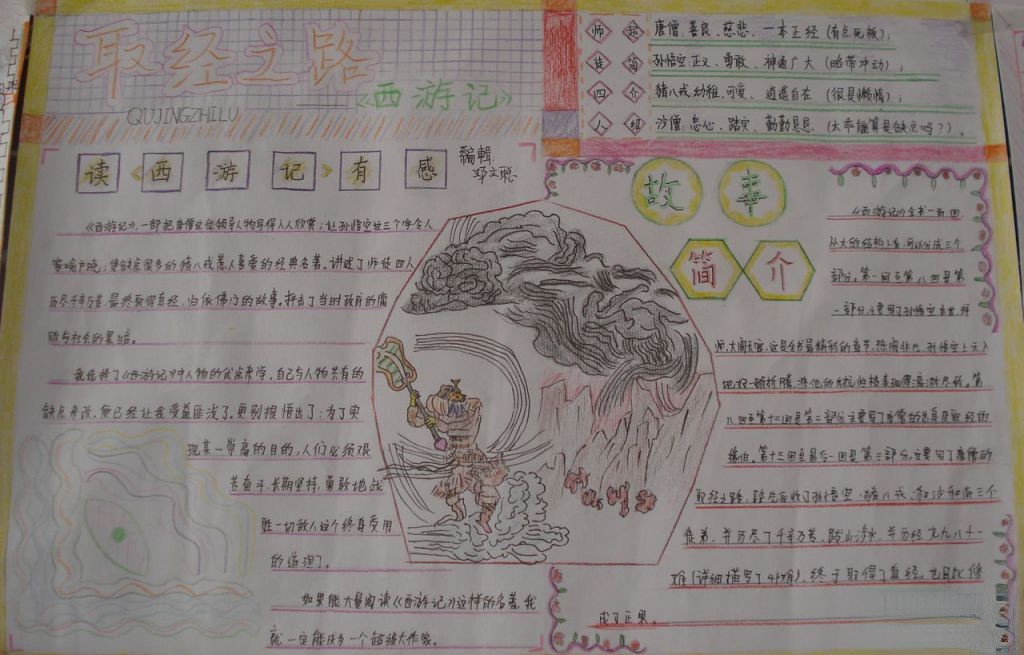 取经之路
《西游记》
QUJINGZHILU
师徒四人
超简介绍
唐僧:善良、慈悲、一本正经(有点死板);
孙悟空:正义、勇敢、神通广大(略带冲动);
猪八戒:幼稚、可爱、逍遥自在(很是懒惰);
沙僧:忠心、踏实、勤勤恳恳(太乖能算是缺点吗?)。
读《西游记》有感
编辑:
邓文聪
《西游记》,一部把唐僧这位领导人物写得人人欣赏;让孙悟空这三个字令人
家喻户晓;使缺点很多的猪八戒惹人喜爱的经典名著,讲述了师徒四人
历尽千辛万苦,最终取得真经,归依佛门的故事,抨击了当时政府的腐
败与社会的黑暗。
我选择了《西游记》中人物的优点来学,自己与人物共有的
缺点来改,便已经让我受益匪浅了,更别提悟出了:为了实
现某一崇高的目的,人们必须艰
苦奋斗,长期坚持,勇敢地战
胜一切敌人这个终身受用
的道理了。
如果能大量阅读《西游记》这样的名著,我
就一定能成为一个超级大作家。
故事
简介
《西游记》全书一百回,
从大的结构上看,可以分成三个
部分。第一回至第八回是第
一部分,主要写了孙悟空出世,拜
师,大闹天宫,这是全书最精彩的章节,热闹非凡,孙悟空上天入
地好一顿折腾,将他的反抗性格表现得淋漓尽致。第
八回至第十二回是第二部分,主要写了唐僧的出身及取经的
缘由。第十三回至最后一回是第三部分,主要写了唐僧的
取经之路,路先后收了孙悟空、猪八戒、和沙和尚三个
徒弟,并历尽了千辛万苦,跋山涉水,并历经九九八十一
难(详细描写了41难),终于取得了真经,也因此修
成了正果。